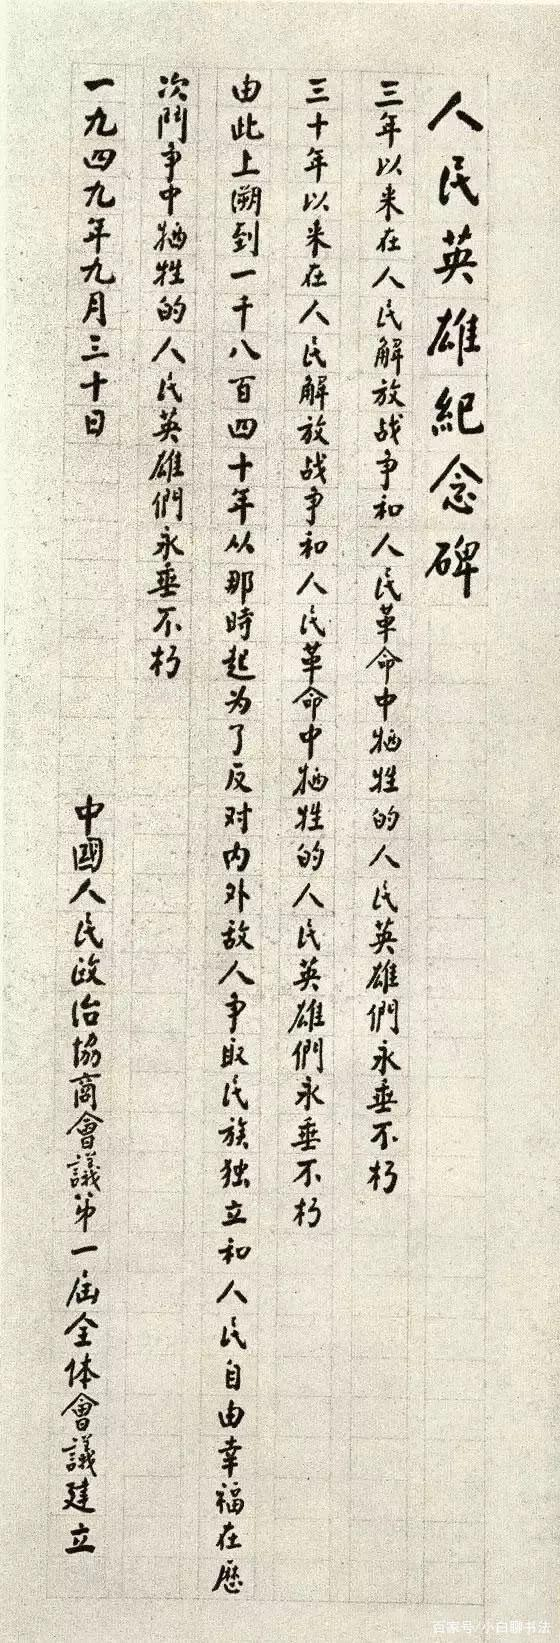 人民英雄紀念碑
三年以来在人民解放战争和人民革命中牺牲的人民英雄們永垂不朽
三十年以来在人民解放战争和人民革命中牺牲的人民英雄們永垂不朽
由此上溯到一千八百四十年从那時起为了反对内外敌人争取民族独立和人民自由幸福在歷
次鬥争中牺牲的人民英雄們永垂不朽
一九四九年九月三十日
中國人民政治協商會議第一届全体會議建立
百家号/小白聊书法